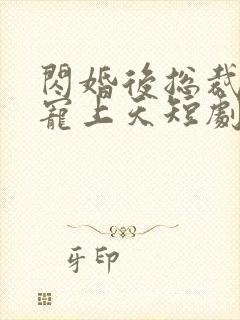 閃婚後總裁
寵上天短劇
牙印